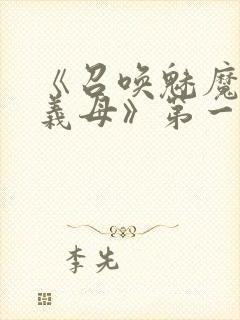 《召唤魅魔
義母》第一
李先